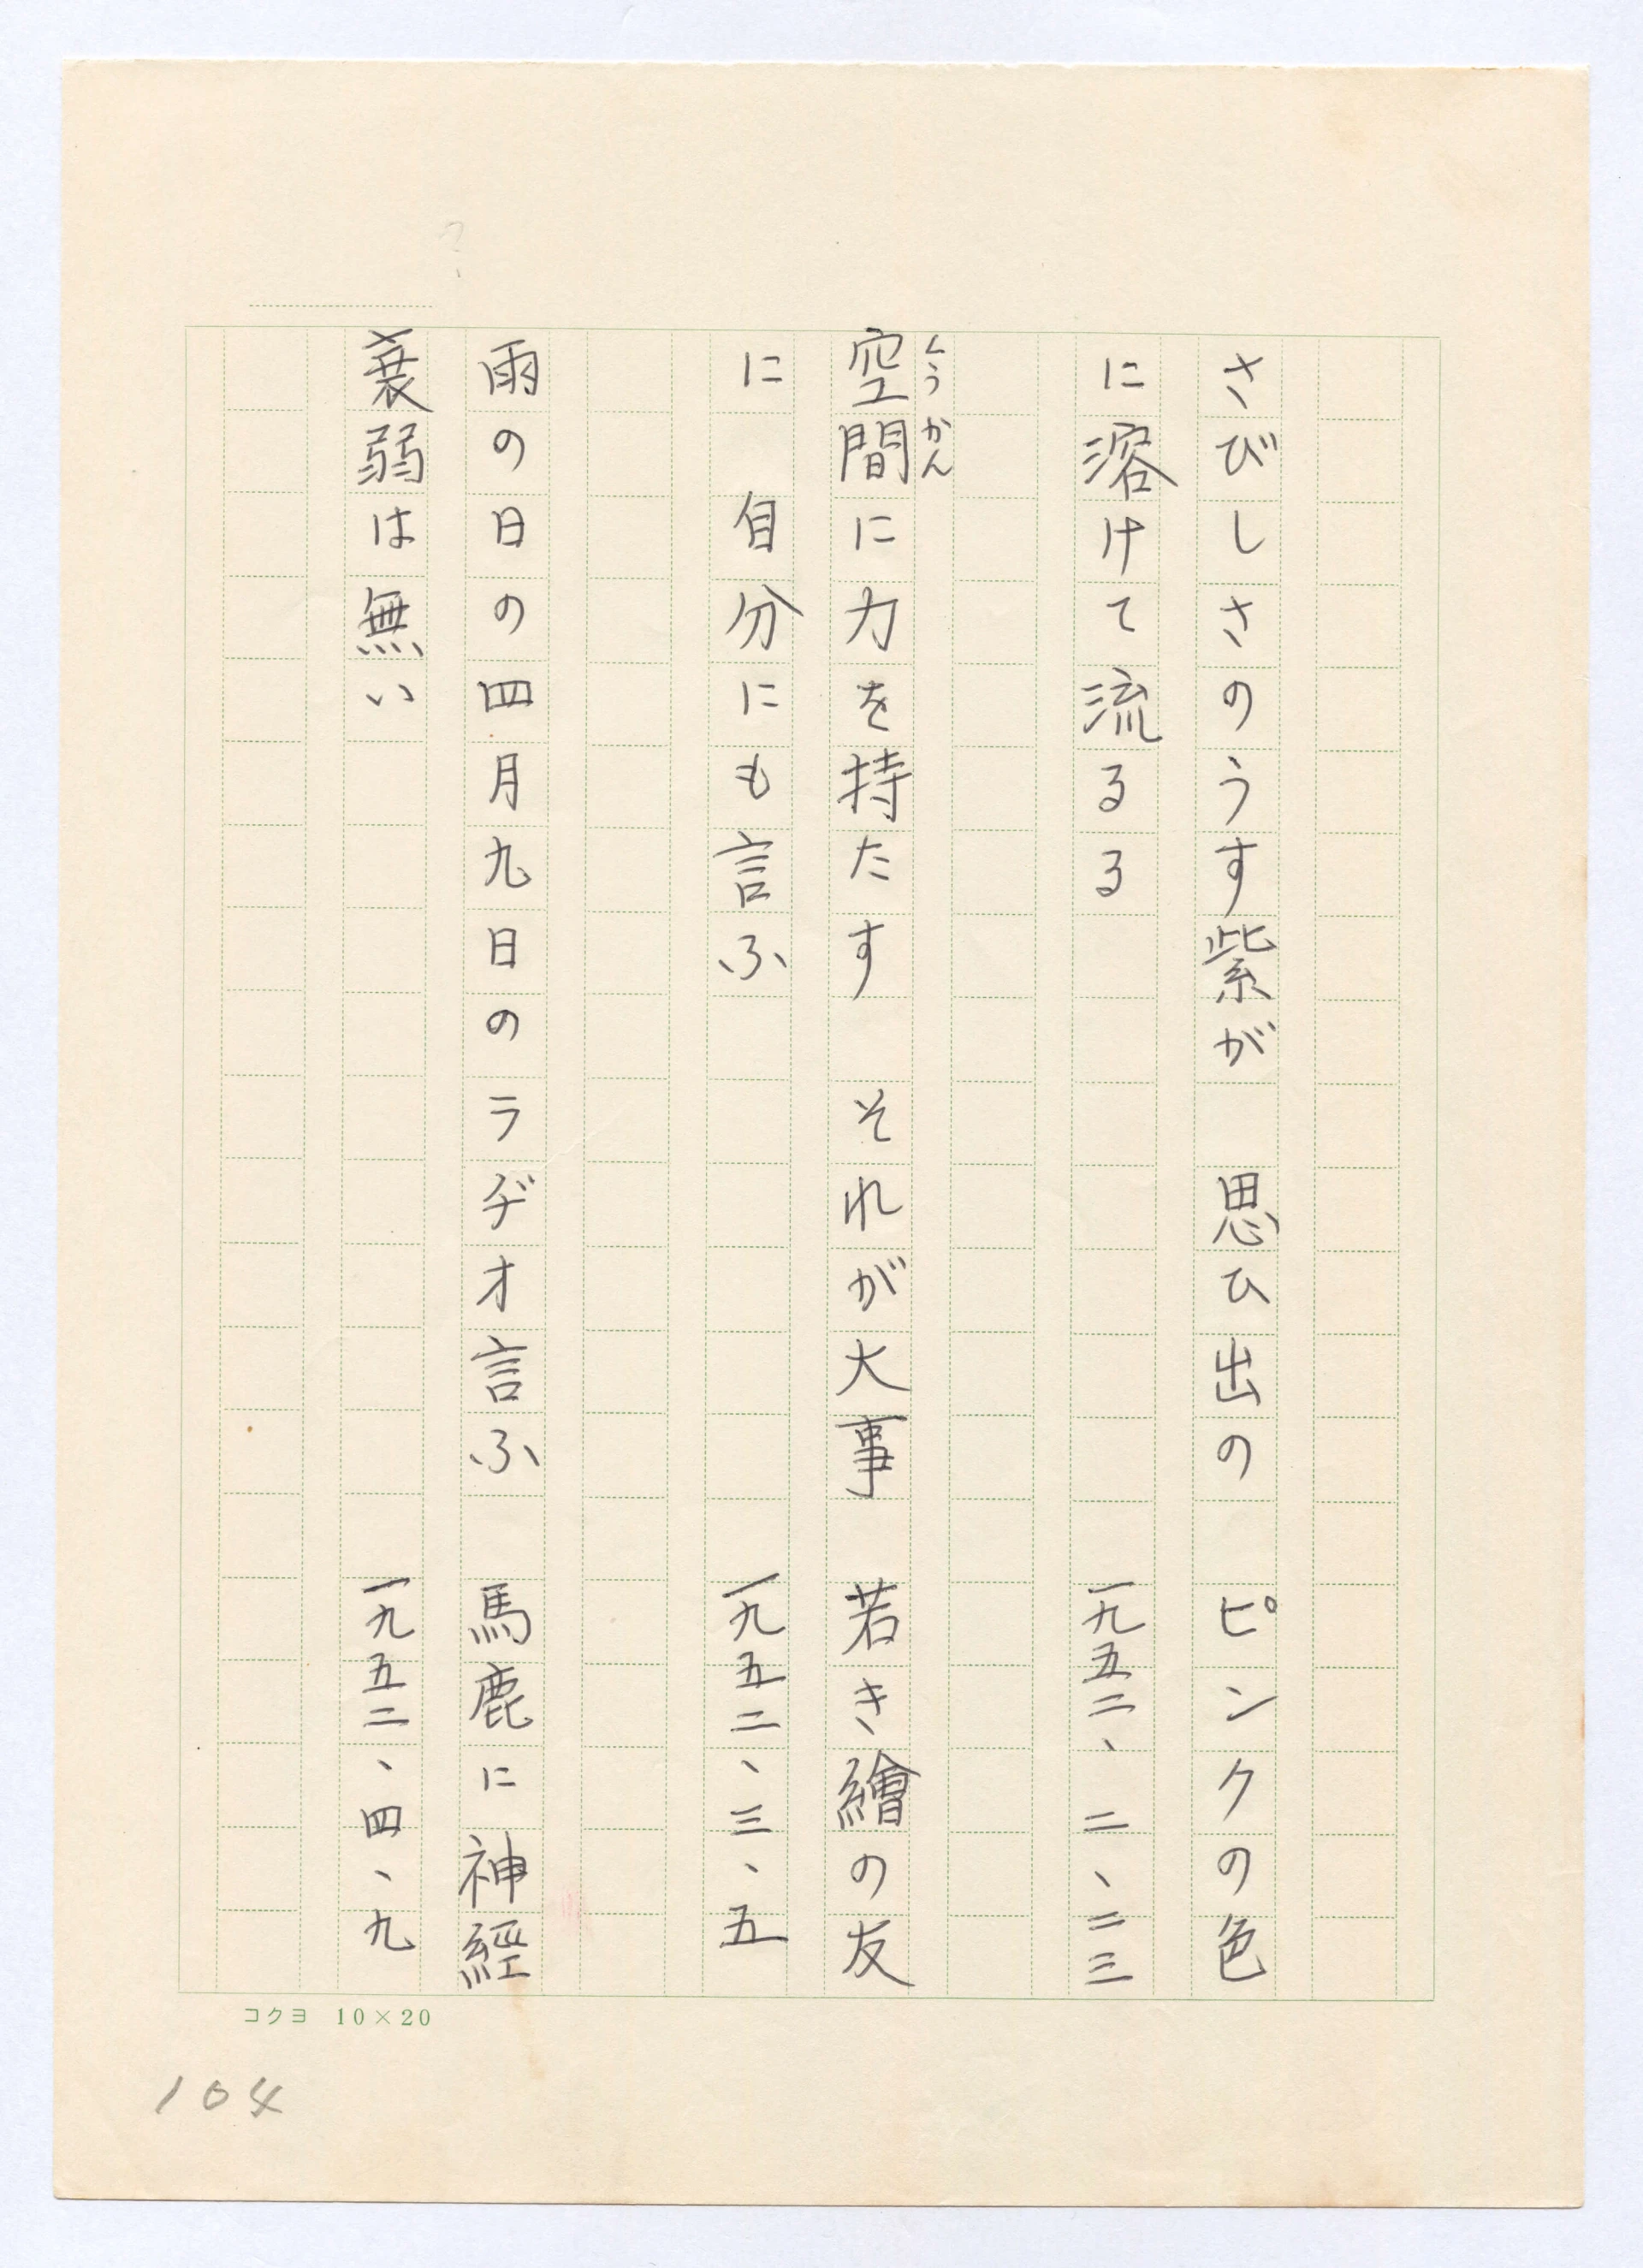 さびしさのうす紫が　思ひ出の　ピンクの色
に溶けて流るる　一九五二、二、二三
空間に力を持たす　それが大事　若き繪の友
くうかん
に　自分にも言ふ　一九五二、三、五
雨の日の四月九日のラヂオ言ふ　馬鹿に神經
衰弱は無い　一九五二、四、九
コクヨ　10×20
104
?